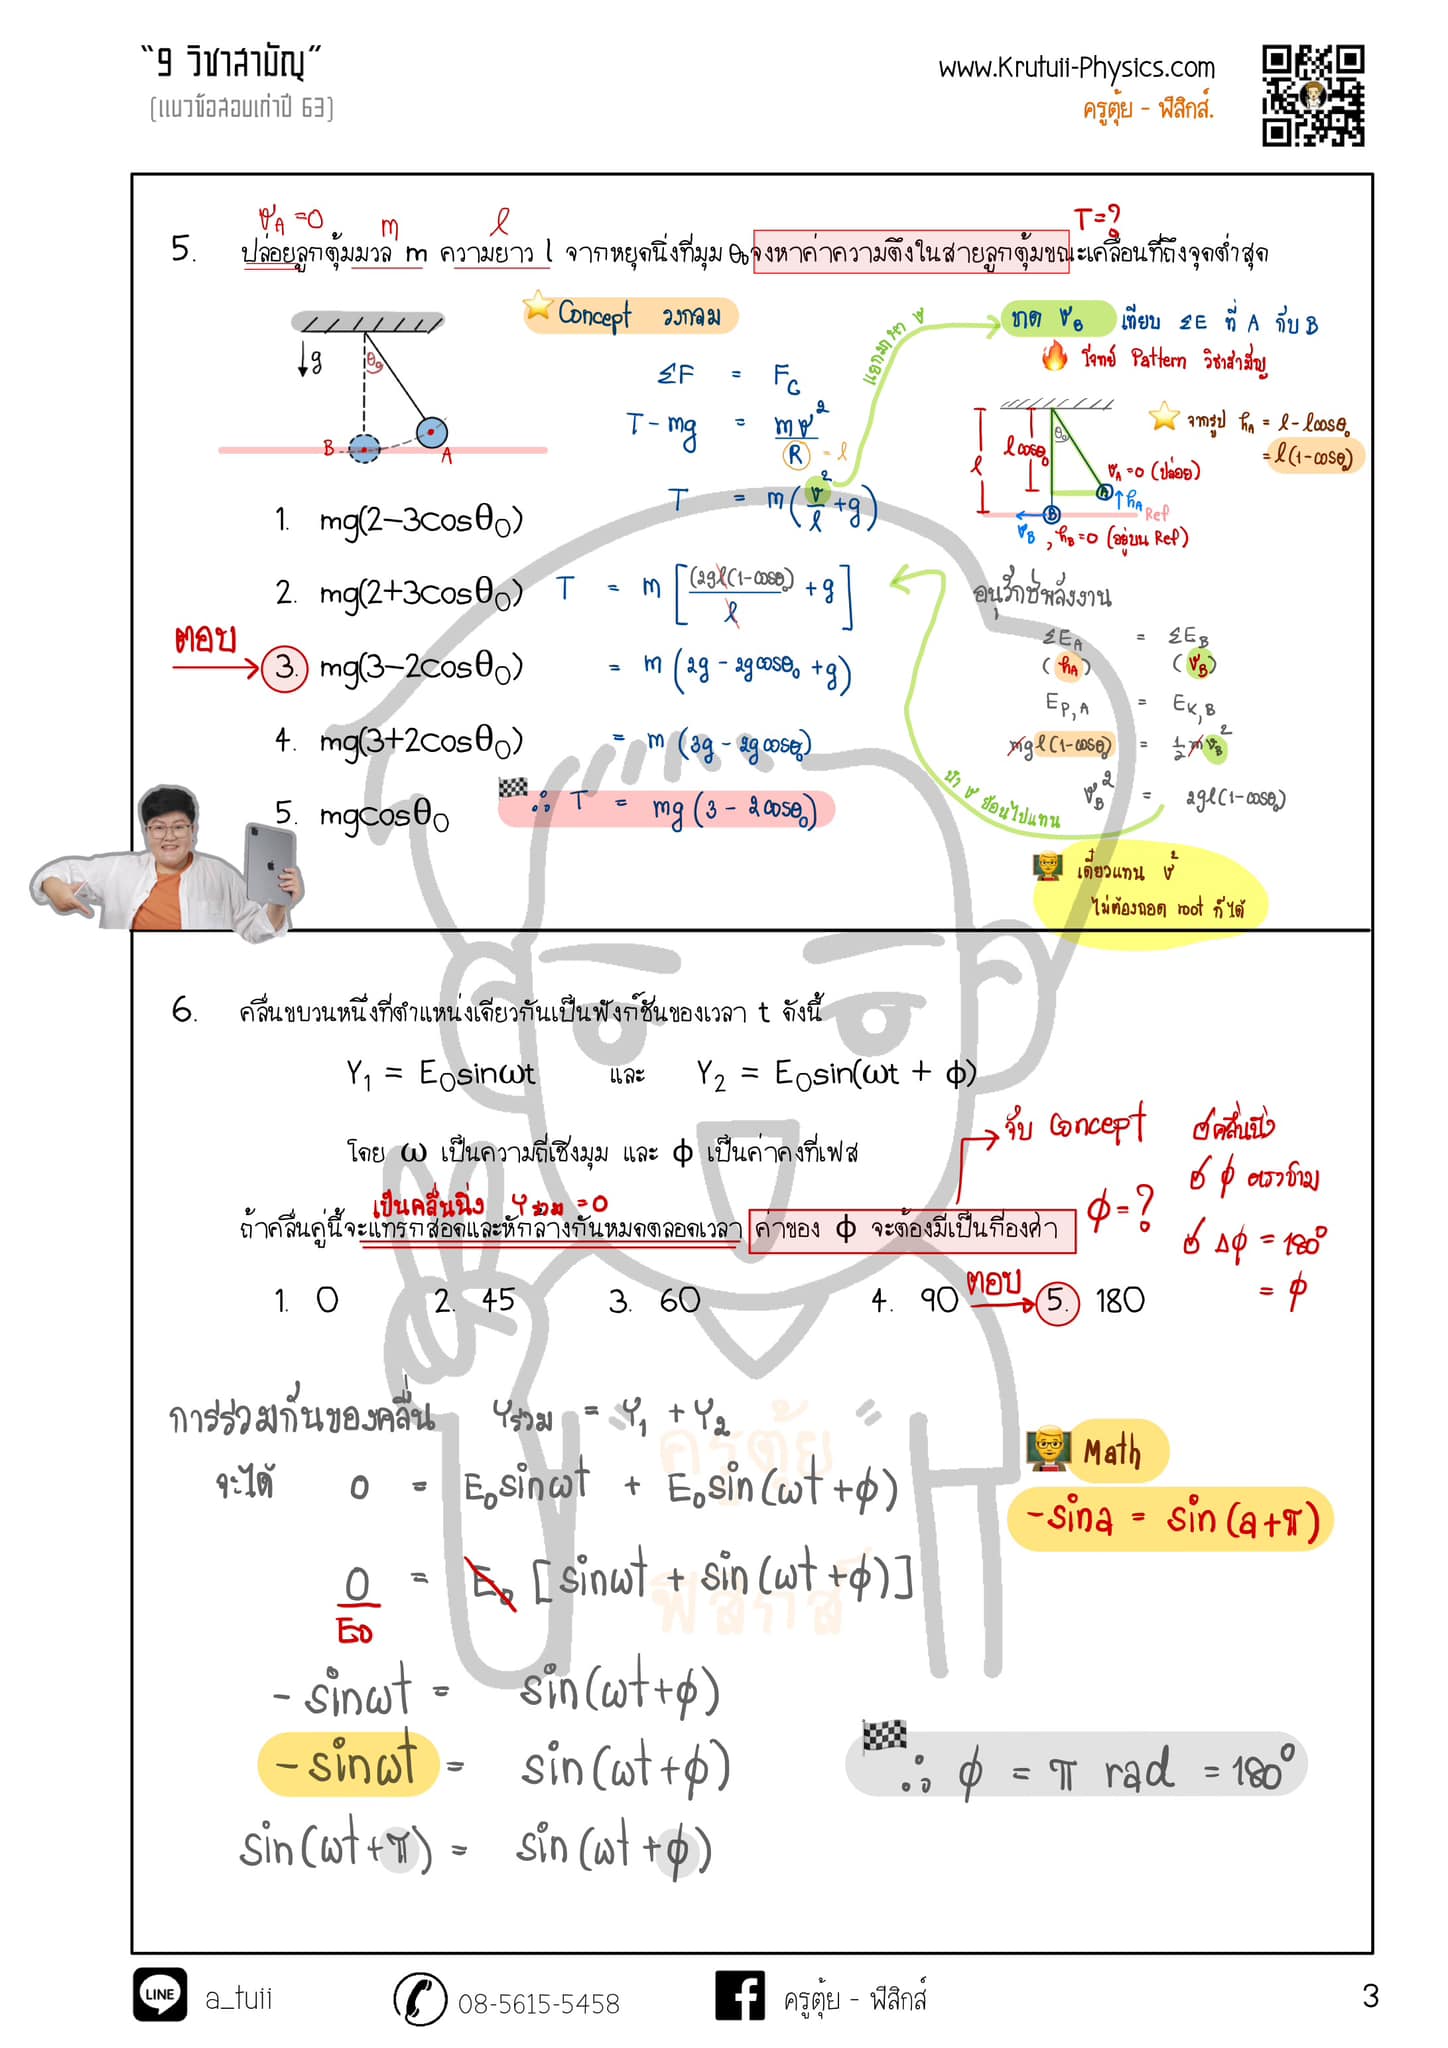 “9 วิชาสามัญ”
(แนวข้อสอบเก่าปี 63)
www.Krutuii-Physics.com
ครูตุ้ย - ฟิสิกส์.
v_A = 0 m l T = ?
5. ปล่อยลูกตุ้มมวล m ความยาว l จากหยุดนิ่งที่มุม θ₀ จงหาค่าความตึงในสายลูกตุ้มขณะเคลื่อนที่ถึงจุดต่ำสุด
g θ₀ B A
1. mg(2-3cosθ₀)
2. mg(2+3cosθ₀)
ตอบ
3. mg(3-2cosθ₀)
4. mg(3+2cosθ₀)
5. mgcosθ₀
Concept วงกลม
ΣF = F_C
T - mg = mv²/R = l
T = m(v²/l + g)
T = m[(2gl(1-cosθ₀)/l + g]
= m(2g - 2gcosθ₀ + g)
= m(3g - 2gcosθ₀)
∴ T = mg(3 - 2cosθ₀)
แยกมาหา v
หา v_B เทียบ ΣE ที่ A กับ B
โจทย์ Pattern วิชาสามัญ
l lcosθ₀ θ₀ A B
จากรูป h_A = l - lcosθ₀
= l(1-cosθ₀)
v_A = 0 (ปล่อย)
h_A Ref
v_B , h_B = 0 (อยู่บน Ref)
อนุรักษ์พลังงาน
ΣE_A = ΣE_B
(h_A) (v_B)
E_P,A = E_K,B
mgl(1-cosθ₀) = ½mv_B²
v_B² = 2gl(1-cosθ₀)
นำ v ย้อนไปแทน
เดี๋ยวแทน v²
ไม่ต้องถอด root ก็ได้
6. คลื่นขบวนหนึ่งที่ตำแหน่งเดียวกันเป็นฟังก์ชันของเวลา t ดังนี้
Y₁ = E₀sinωt และ Y₂ = E₀sin(ωt + ϕ)
โดย ω เป็นความถี่เชิงมุม และ ϕ เป็นค่าคงที่เฟส
เป็นคลื่นนิ่ง Yรวม = 0
ถ้าคลื่นคู่นี้จะแทรกสอดและหักล้างกันหมดตลอดเวลา ค่าของ ϕ จะต้องมีเป็นกี่องศา
ϕ = ?
จับ Concept
คลื่นนิ่ง
ϕ ตรงข้าม
Δϕ = 180°
= ϕ
1. 0 2. 45 3. 60 4. 90 ตอบ 5. 180
การรวมกันของคลื่น Yรวม = Y₁ + Y₂
จะได้ 0 = E₀sinωt + E₀sin(ωt + ϕ)
0/E₀ = E₀[sinωt + sin(ωt + ϕ)]
-sinωt = sin(ωt + ϕ)
-sinωt = sin(ωt + ϕ)
sin(ωt + π) = sin(ωt + ϕ)
Math
-sina = sin(a+π)
∴ ϕ = π rad = 180°
ครูตุ้ย
ฟิสิกส์
LINE a_tuii
08-5615-5458
ครูตุ้ย - ฟิสิกส์
3